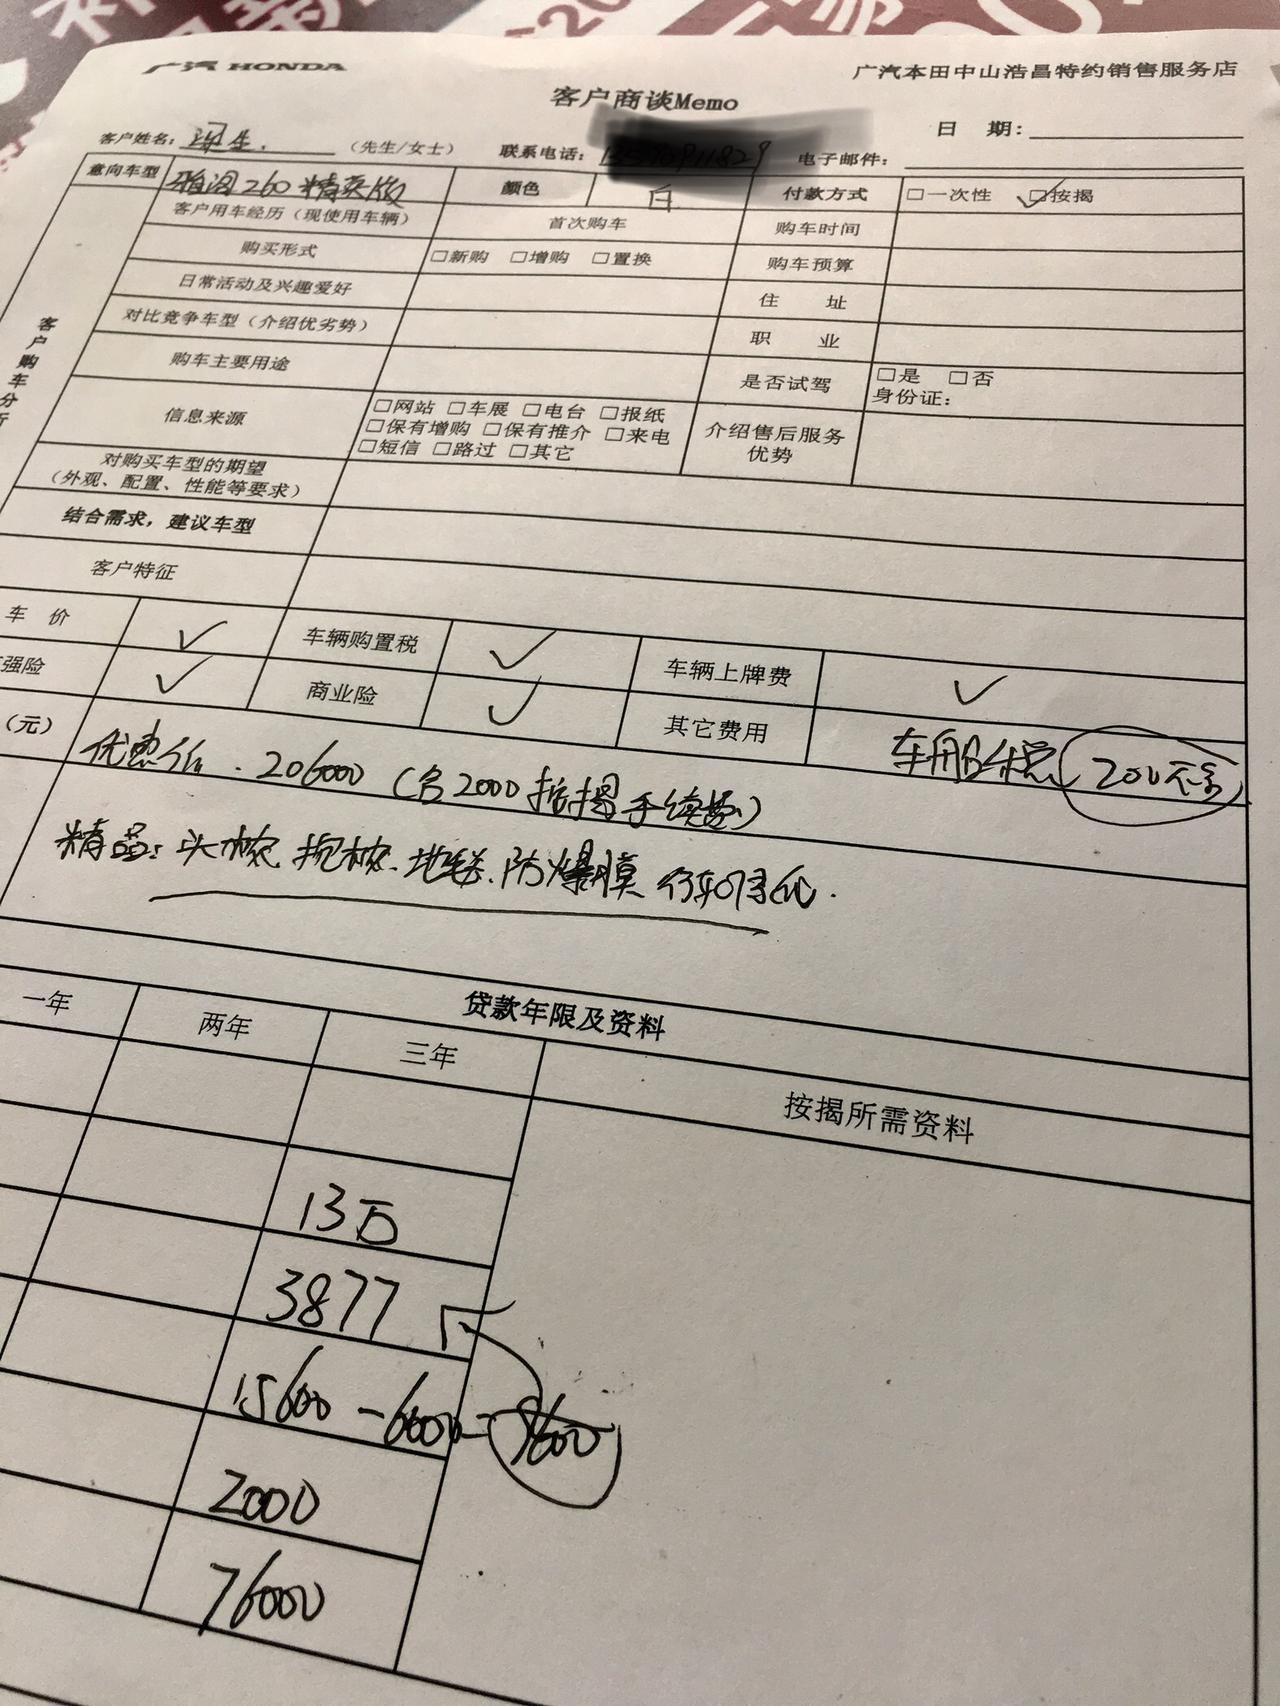 广汽 HONDA
广汽本田中山浩昌特约销售服务店
客户商谈Memo
日 期：
客户姓名： 生. （先生/女士） 联系电话： 电子邮件：
意向车型 雅阁260精英版 颜色 白 付款方式 □一次性 □按揭
客户用车经历（现使用车辆） 首次购车 购车时间
购买形式 □新购 □增购 □置换 购车预算
日常活动及兴趣爱好 住 址
对比竞争车型（介绍优劣势） 职 业
购车主要用途 是否试驾 □是 □否
身份证：
信息来源 □网站 □车展 □电台 □报纸
□保有增购 □保有推介 □来电
□短信 □路过 □其它
介绍售后服务
优势
客户购车分析
对购买车型的期望
（外观、配置、性能等要求）
结合需求，建议车型
客户特征
车 价 ✓ 车辆购置税 ✓ 车辆上牌费 ✓
强险 ✓ 商业险 ✓ 其它费用 车船税 200不含
（元） 优惠价. 206000（含2000按揭手续费）
精品: 头枕 抱枕. 地毯. 防爆膜 行车记录仪.
贷款年限及资料
一年 两年 三年 按揭所需资料
13万
3877
15600-6000=9600
2000
76000